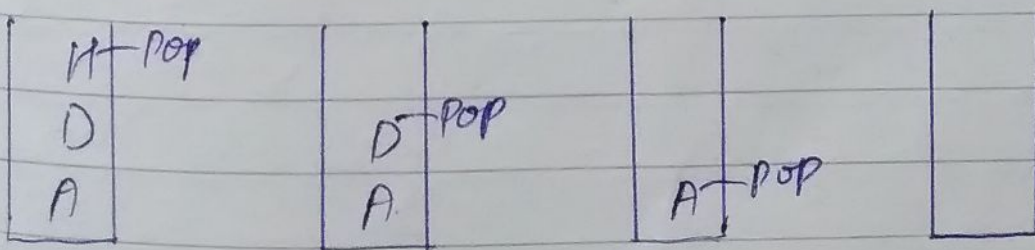 H Pop
D D Pop
A A A Pop